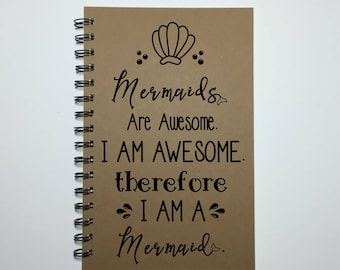 Mermaids
Are Awesome.
I AM AWESOME.
therefore
I AM A
Mermaid.